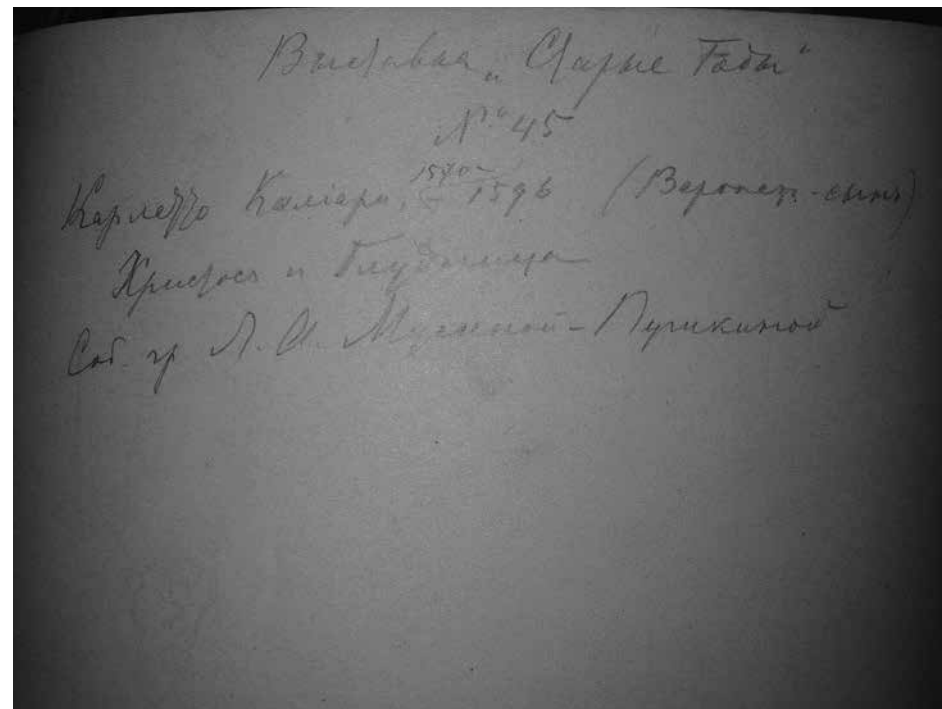 Выставка „Старые Годы“
№ 45
Карлеттo Калiари, 1570– – 1596 (Веронезъ-сынъ)
Христосъ и блудница
Соб. гр. Л. И. Мусиной-Пушкиной